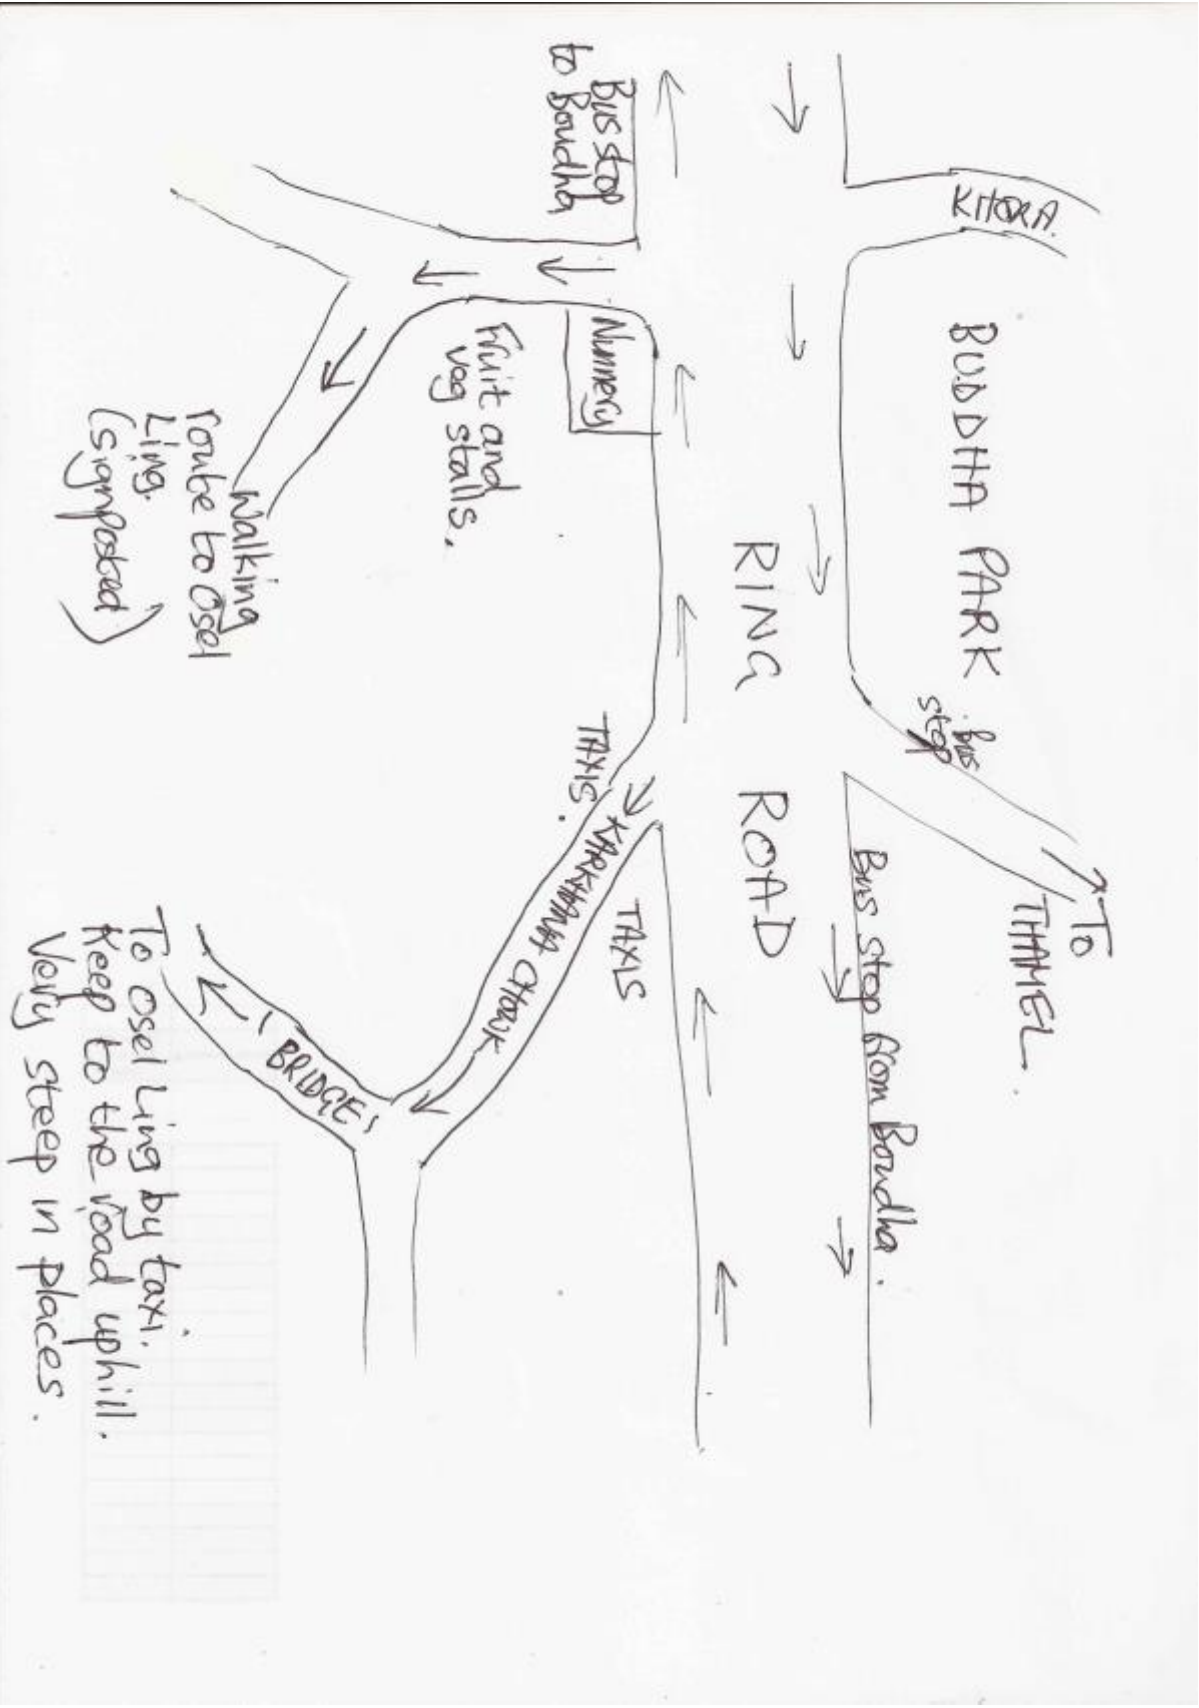 KHORA.
BUDDHA PARK
bus
stop
To
THAMEL
Bus stop from Boudha.
RING ROAD
Bus stop
to Boudha
Nunnery
Fruit and
veg stalls.
Walking
route to Osel
Ling.
(signposted)
TAXIS.
TAXIS
KARKHANA CHOWK
BRIDGE
To Osel Ling by taxi.
Keep to the road uphill.
Very steep in places.